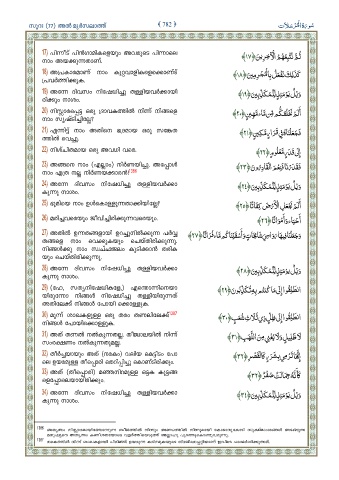 സൂറ: (77) അൽ മുർസലാത്ത് ﴾ 782 ﴿ سُورَةُ الْمُرْسَلَات
17) പിന്നീട് പിൻഗാമികളെയും അവരുടെ പിന്നാലെ
നാം അയക്കുന്നതാണ്.
ثُمَّ نُتْبِعُهُمُ الْآخِرِينَ ﴿١٧﴾
18) അപ്രകാരമാണ് നാം കുറ്റവാളികളെക്കൊണ്ട്
പ്രവർത്തിക്കുക.
كَذَٰلِكَ نَفْعَلُ بِالْمُجْرِمِينَ ﴿١٨﴾
19) അന്നേ ദിവസം നിഷേധിച്ചു തള്ളിയവർക്കായി
രിക്കും നാശം.
وَيْلٌ يَوْمَئِذٍ لِلْمُكَذِّبِينَ ﴿١٩﴾
20) നിസ്സാരപ്പെട്ട ഒരു ദ്രാവകത്തിൽ നിന്ന് നിങ്ങളെ
നാം സൃഷ്ടിച്ചില്ലേ?
أَلَمْ نَخْلُقْكُمْ مِنْ مَاءٍ مَهِينٍ ﴿٢٠﴾
21) എന്നിട്ട് നാം അതിനെ ഭദ്രമായ ഒരു സങ്കേത
ത്തിൽ വെച്ചു.
فَجَعَلْنَاهُ فِي قَرَارٍ مَكِينٍ ﴿٢١﴾
22) നിശ്ചിതമായ ഒരു അവധി വരെ.
إِلَىٰ قَدَرٍ مَعْلُومٍ ﴿٢٢﴾
23) അങ്ങനെ നാം (എല്ലാം) നിർണയിച്ചു. അപ്പോൾ
നാം എത്ര നല്ല നിർണയക്കാരൻ!
فَقَدَرْنَا فَنِعْمَ الْقَادِرُونَ ﴿٢٣﴾
24) അന്നേ ദിവസം നിഷേധിച്ചു തള്ളിയവർക്കാ
കുന്നു നാശം.
وَيْلٌ يَوْمَئِذٍ لِلْمُكَذِّبِينَ ﴿٢٤﴾
25) ഭൂമിയെ നാം ഉൾക്കൊള്ളുന്നതാക്കിയില്ലേ?
أَلَمْ نَجْعَلِ الْأَرْضَ كِفَاتًا ﴿٢٥﴾
26) മരിച്ചവരെയും ജീവിച്ചിരിക്കുന്നവരെയും.
أَحْيَاءً وَأَمْوَاتًا ﴿٢٦﴾
27) അതിൽ ഉന്നതങ്ങളായി ഉറച്ചുനിൽക്കുന്ന പർവ്വ
തങ്ങളെ നാം വെക്കുകയും ചെയ്തിരിക്കുന്നു.
നിങ്ങൾക്കു നാം സ്വച്ഛജലം കുടിക്കാൻ തരിക
യും ചെയ്തിരിക്കുന്നു.
وَجَعَلْنَا فِيهَا رَوَاسِيَ شَامِخَاتٍ وَأَسْقَيْنَاكُمْ مَاءً فُرَاتًا ﴿٢٧﴾
28) അന്നേ ദിവസം നിഷേധിച്ചു തള്ളിയവർക്കാ
കുന്നു നാശം.
وَيْلٌ يَوْمَئِذٍ لِلْمُكَذِّبِينَ ﴿٢٨﴾
29) (ഹേ, സത്യനിഷേധികളേ,) എന്തൊന്നിനെയാ
യിരുന്നോ നിങ്ങൾ നിഷേധിച്ചു തള്ളിയിരുന്നത്
അതിലേക്ക് നിങ്ങൾ പോയി ക്കൊള്ളുക.
انْطَلِقُوا إِلَىٰ مَا كُنْتُمْ بِهِ تُكَذِّبُونَ ﴿٢٩﴾
30) മൂന്ന് ശാഖകളുള്ള ഒരു തരം തണലിലേക്ക്
നിങ്ങൾ പോയിക്കൊള്ളുക.
انْطَلِقُوا إِلَىٰ ظِلٍّ ذِي ثَلَاثِ شُعَبٍ ﴿٣٠﴾
31) അത് തണൽ നൽകുന്നതല്ല; തീജ്വാലയിൽ നിന്ന്
സംരക്ഷണം നൽകുന്നതുമല്ല.
لَا ظَلِيلٍ وَلَا يُغْنِي مِنَ اللَّهَبِ ﴿٣١﴾
32) തീർച്ചയായും അത് (നരകം) വലിയ കെട്ടിടം പോ
ലെ ഉയരമുള്ള തീപ്പൊരി തെറിപ്പിച്ചു കൊണ്ടിരിക്കും.
إِنَّهَا تَرْمِي بِشَرَرٍ كَالْقَصْرِ ﴿٣٢﴾
33) അത് (തീപ്പൊരി) മഞ്ഞനിറമുള്ള ഒട്ടക കൂട്ടങ്ങ
ളെപ്പോലെയായിരിക്കും.
كَأَنَّهُ جِمَالَتٌ صُفْرٌ ﴿٣٣﴾
34) അന്നേ ദിവസം നിഷേധിച്ചു തള്ളിയവർക്കാ
കുന്നു നാശം.